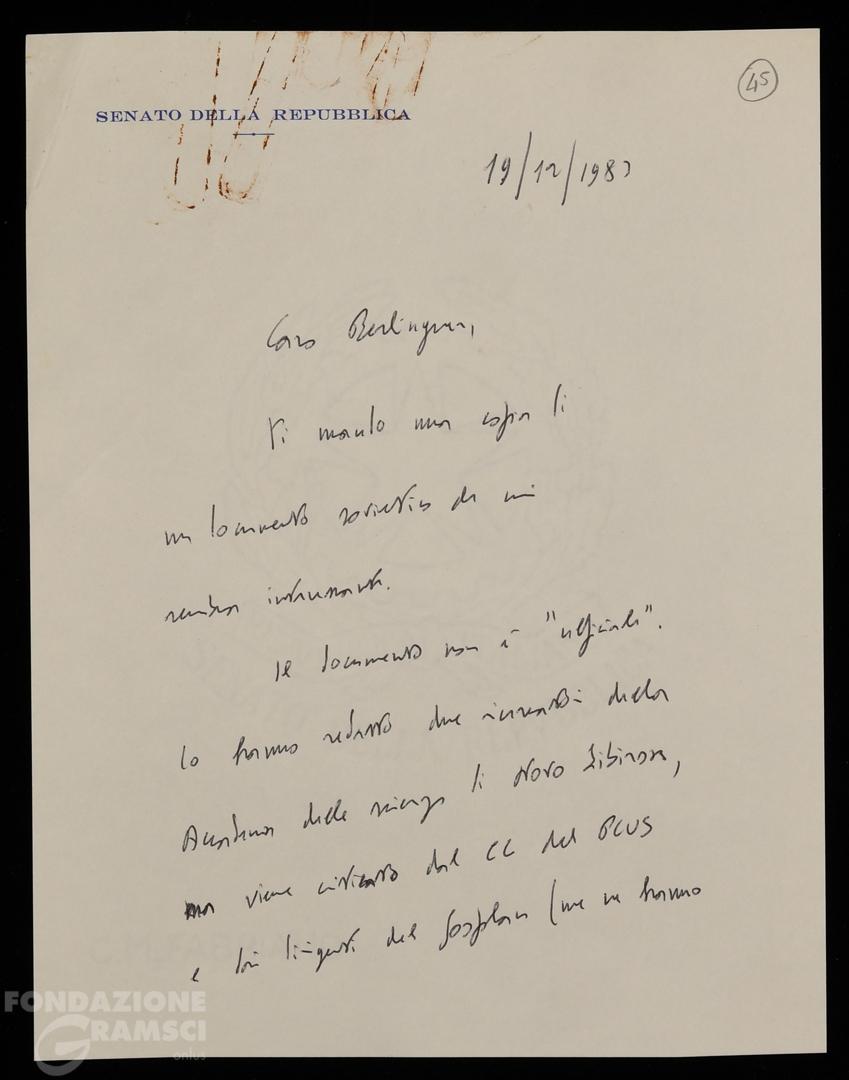 45
SENATO DELLA REPUBBLICA
19/12/1983
Caro Berlinguer,
Ti mando una copia di
un documento sovietico che mi
sembra interessante.
Il documento non è "ufficiale".
Lo hanno redatto due scienziati della
Accademia delle scienze di Novo Sibirsk,
ma viene criticato dal CC del PCUS
e dai dirigenti del Gosplan (me ne hanno
FONDAZIONE
GRAMSCI
onlus